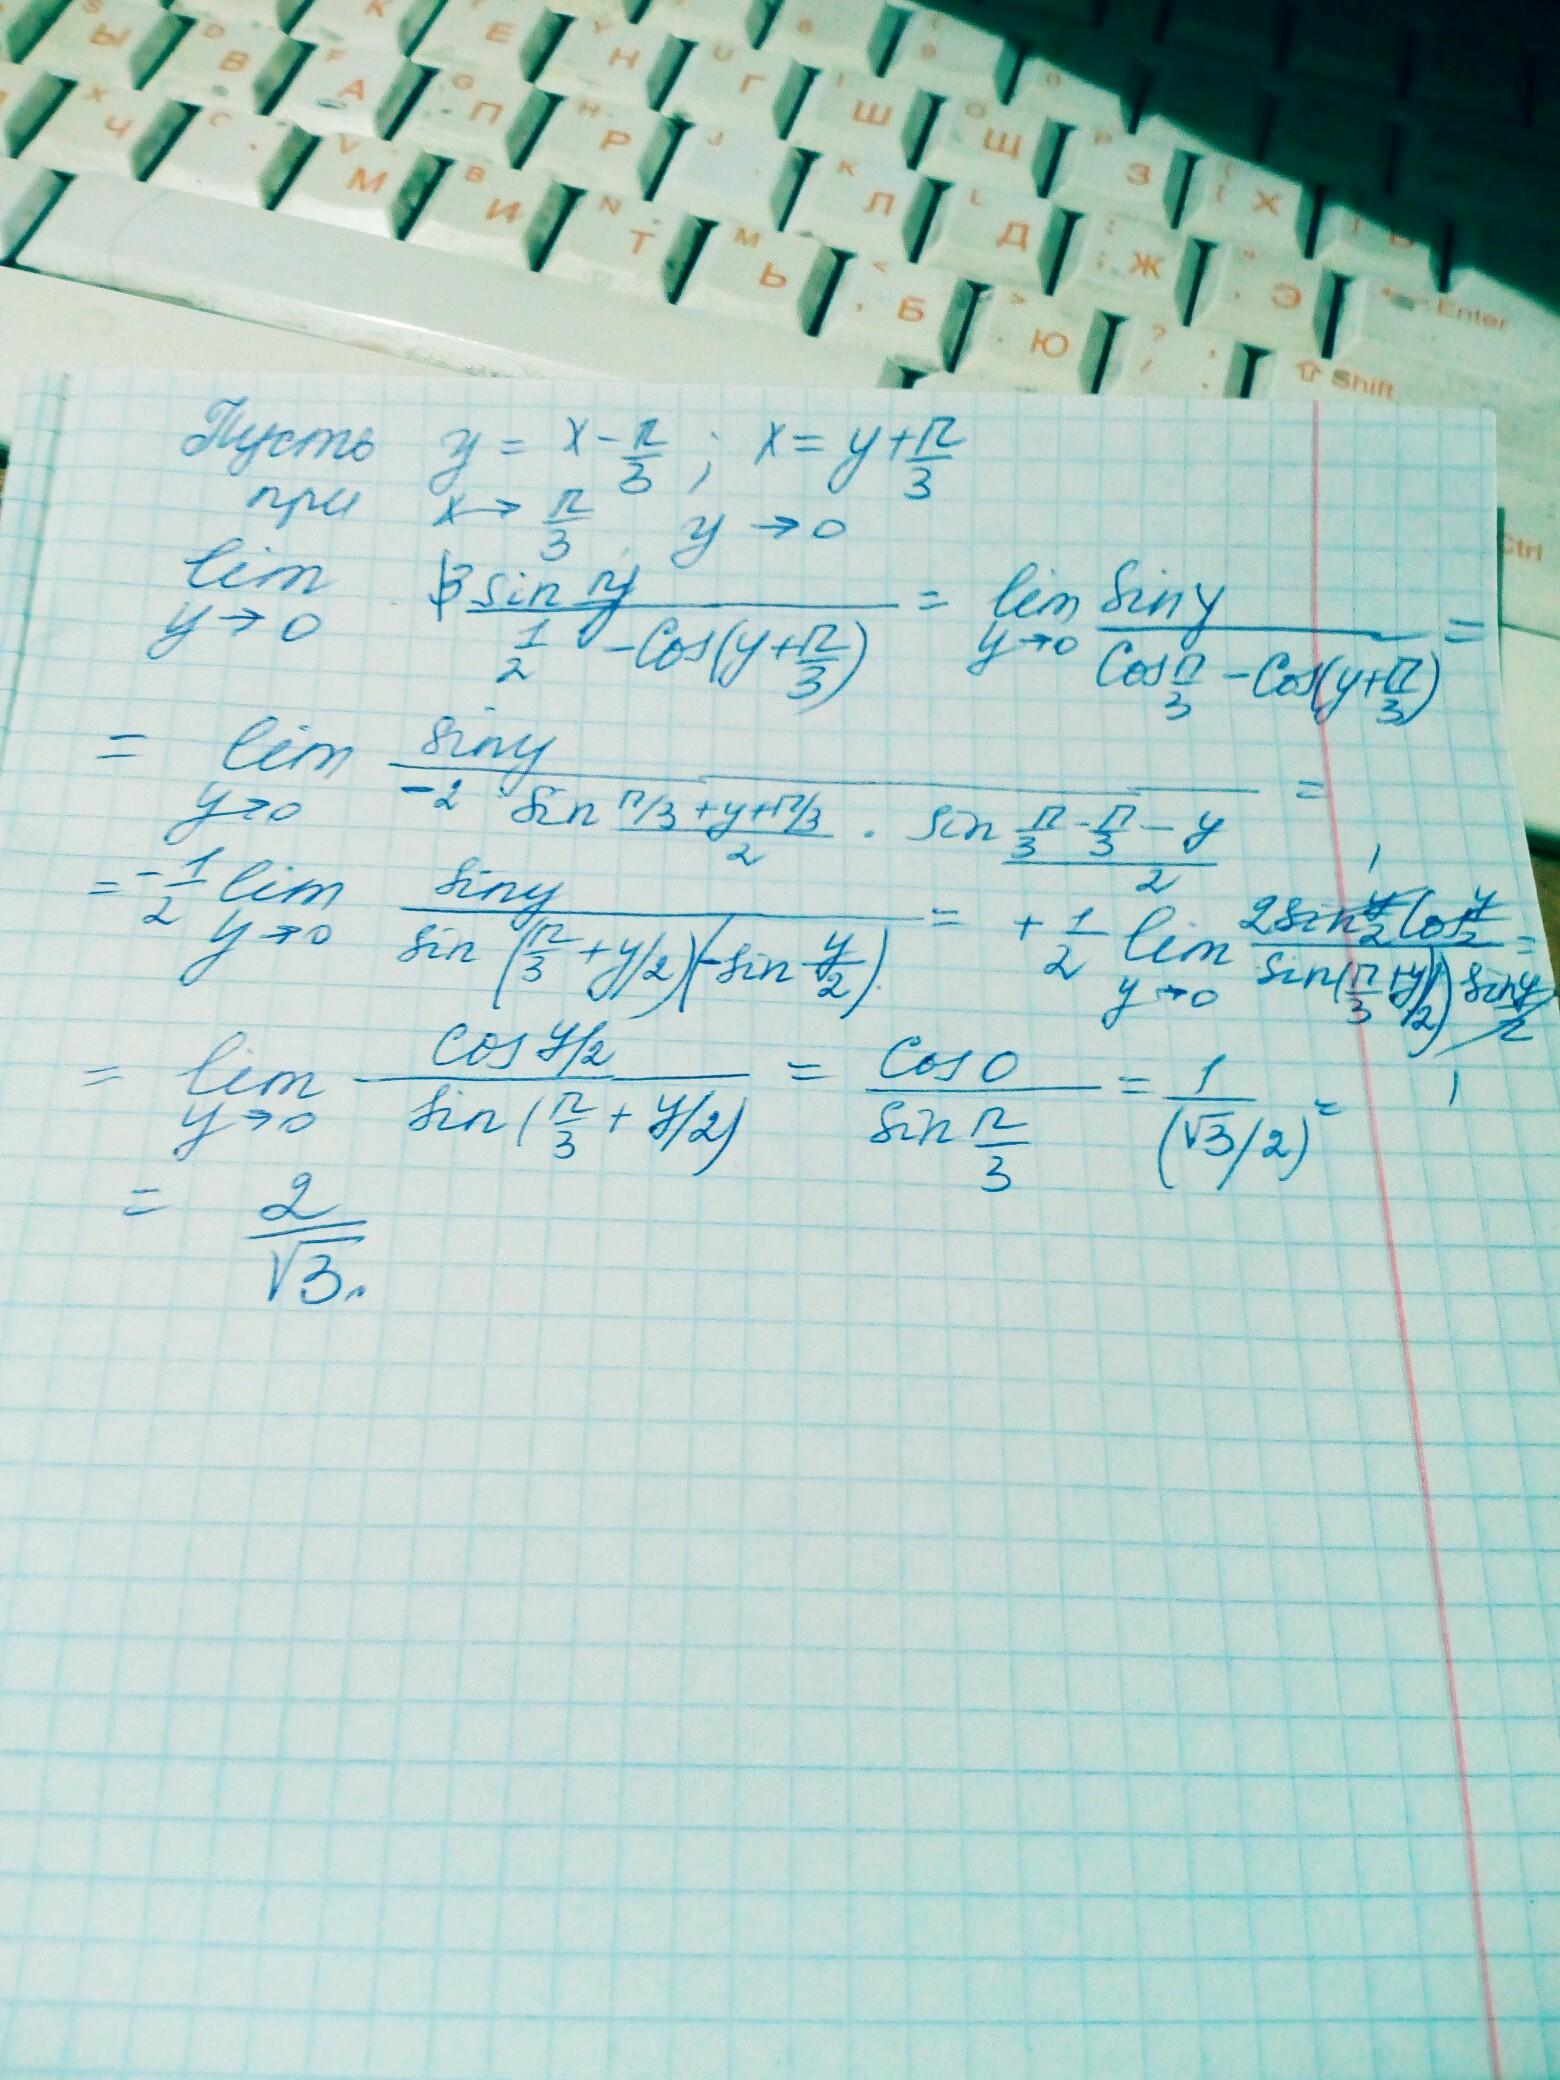 Ы В А Е Н
Ч П Р Г Ш Щ З Х
М И Т Ь Л Д Ж Э Enter
Б Ю Shift
Ctrl
Пусть y = x - π/3 ; x = y + π/3
при x → π/3 y → 0
lim y→0 sin y / (1/2 - Cos(y + π/3)) = lim y→0 sin y / (Cos π/3 - Cos(y + π/3)) =
= lim y→0 sin y / (-2 sin (π/3 + y + π/3)/2 · sin (π/3 - π/3 - y)/2) =
= -1/2 lim y→0 sin y / (sin (π/3 + y/2)(-sin y/2)) = + 1/2 lim y→0 2 sin y/2 Cos y/2 / (sin(π/3 + y/2) sin y/2) =
= lim y→0 Cos y/2 / sin(π/3 + y/2) = Cos 0 / sin π/3 = 1 / (√3/2) =
= 2/√3.